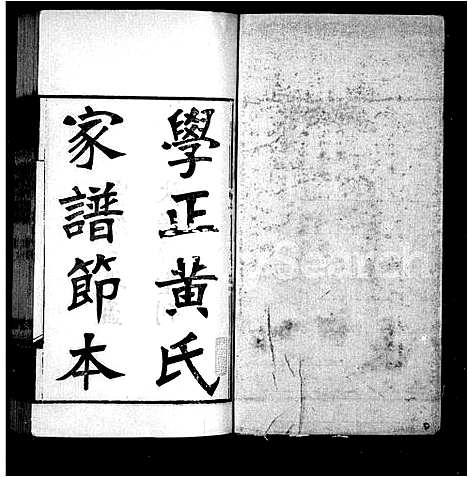 學正黃氏
家譜節本